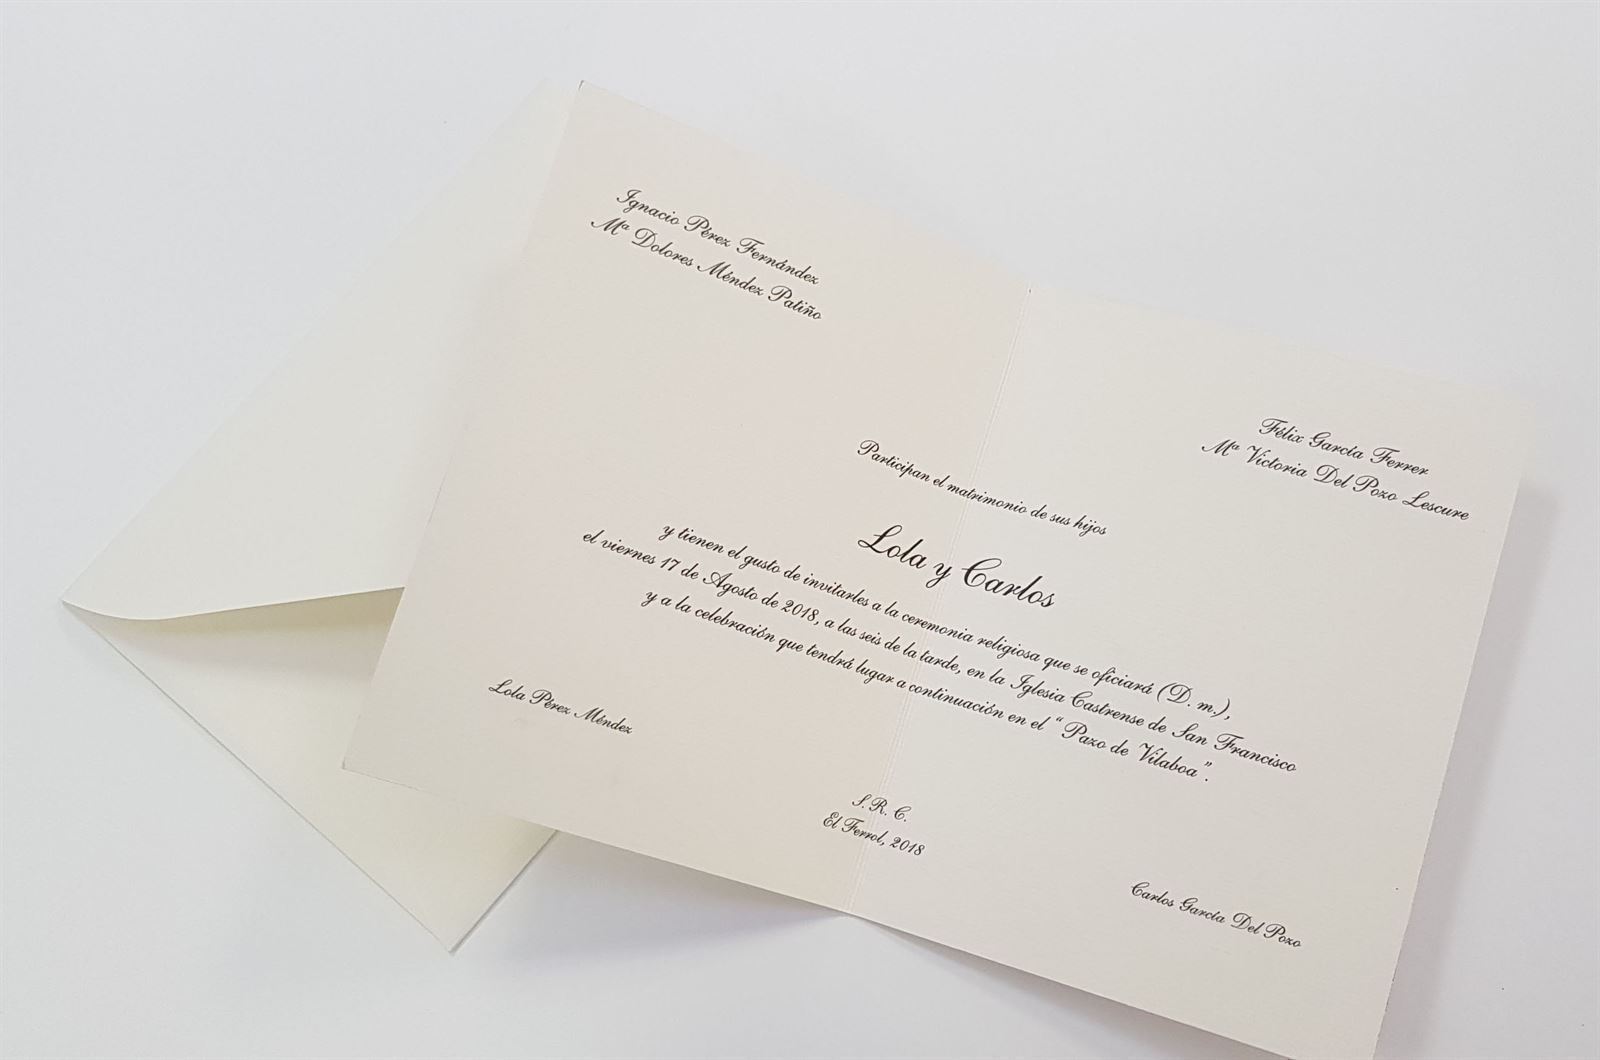 Ignacio Pérez Fernández
Mª Dolores Méndez Patiño
Félix García Ferrer
Mª Victoria Del Pozo Lescure
Participan el matrimonio de sus hijos
Lola y Carlos
y tienen el gusto de invitarles a la ceremonia religiosa que se oficiará (D. m.),
el viernes 17 de Agosto de 2018, a las seis de la tarde, en la Iglesia Castrense de San Francisco
y a la celebración que tendrá lugar a continuación en el " Pazo de Vilaboa ".
Lola Pérez Méndez
S. R. C.
El Ferrol, 2018
Carlos García Del Pozo